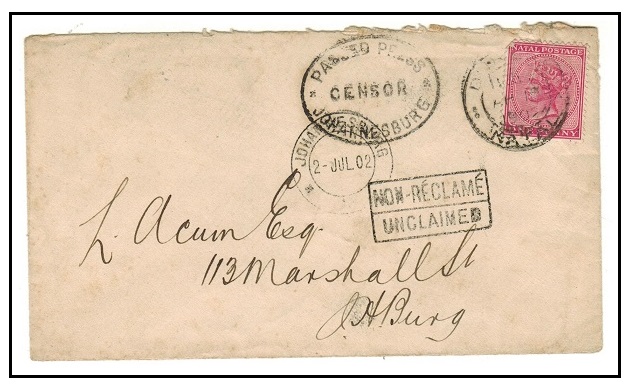 PASSED PRESS
CENSOR
JOHANNESBURG
NATAL POSTAGE
ONE PENNY
NATAL
JOHANNESBURG
2-JUL.02
NON-RÉCLAMÉ
UNCLAIMED
L. Acum Esq.
113 Marshall St
JHBurg